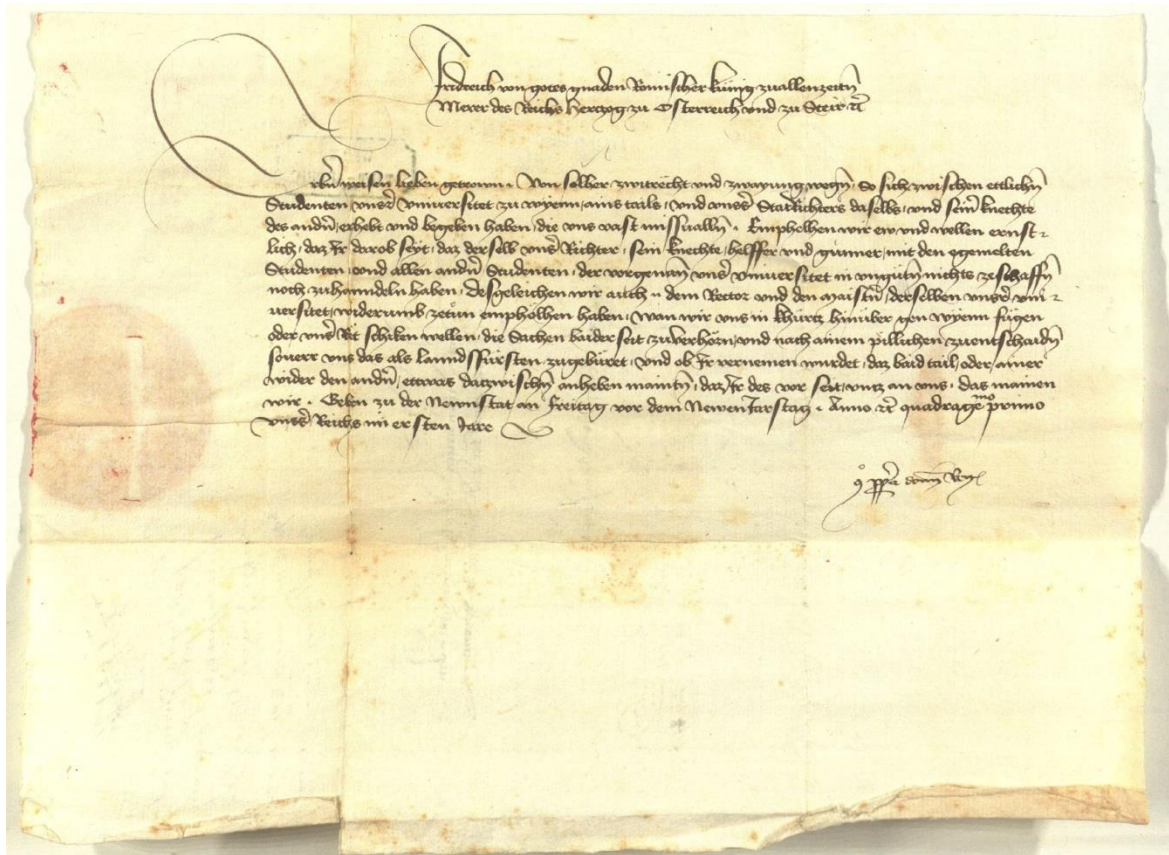 Fridreich von gotes gnaden Römischer kunig zuallenzeitn̄
Merer des Reichs Herczog zu Österreich vnd zu Steir etc̄
Erbn̄ weisen lieben getrewn. Von solher zwitrecht vnd zwayung wegn̄, So sich zwischen ettlichn̄
Studenten vnsr̄ Vniuersitet zu wyenn, ains tails, vnd vnsrs̄ Statrichters daselbs, vnd sein̄ knechte
des andn̄, erhebt vnd begeben haben, die vns vast missualln̄. Emphelhen wir ew vnd wellen ernst-
lich, daz Ir darob seyt, daz derselb vnsr̄ Richter, sein knechte, helffer vnd gunner, mit den egemelten
Studenten, vnd allen andn̄ Studenten, der vorgenan̄ vnsr̄ vniuersitet in vngutn̄ nichts zeschaffn̄
noch zuhanndeln haben, Desgeleichen wir auch dem Rector vnd den maistn̄, derselben vnsr̄ vni-
uersitet, widerumb zetůn emphólhen haben, Wan wir vns in khůrtz hinüber gen wyenn fůgen
oder vnsr̄ Rět schiken wellen, die Sachen baider seit zuuerhörn̄, vnd nach ainem pillichen zuentschaidn̄
souerr vns das als lanndsfürsten zugebüret, vnd ob Ir vernemen wurdet, daz baid tail, oder ainer
wider den andn̄, etwas darzwischn̄ anheben maintn̄, daz Ir des vor seit, vntz an vns, das mainen
wir. Geben zu der Newnstat an Freitag vor dem Newen Jarstag. Anno etc̄ quadrageᵐᵒ primo
vnsrs̄ Reichs im ersten Jare